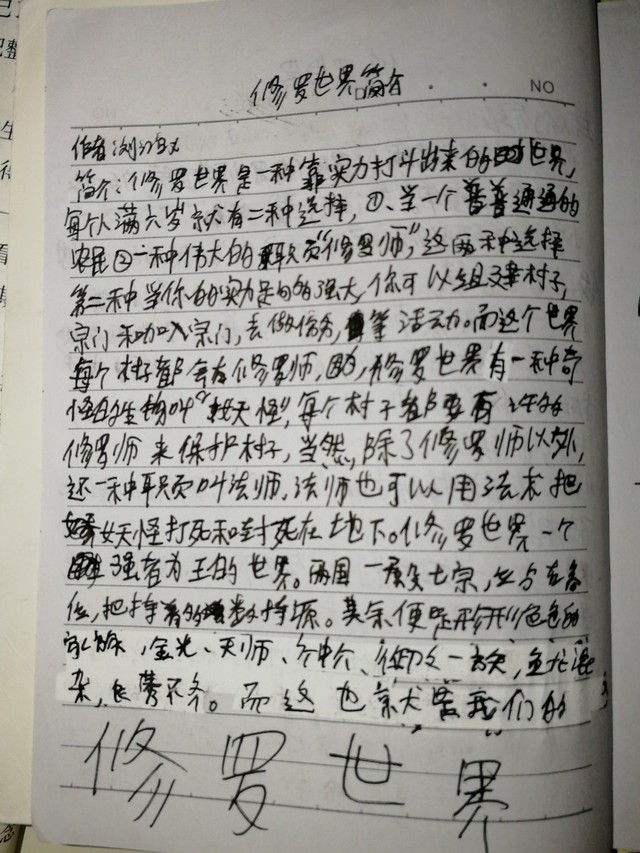 修罗世界简介
NO
作者:刘
简介:修罗世界是一种靠实力打斗出来的世界,
每个人满六岁就有二种选择,①、当一个普普通通的
农民②一种伟大的职员“修罗师”,这两种选择
第二种当你的实力足够强大,你可以组建村子,
宗门和加入宗门,去做任务,等活动。而这个世界
每个村子都会有修罗师,因为,修罗世界有一种奇
怪的生物叫“妖怪”,每个村子都要有许多
修罗师来保护村子,当然,除了修罗师以外,
还一种职员叫法师,法师也可以用法术把
妖怪打死和封死在地下。修罗世界一个
强者为王的世界。两国一殿七宗,
位,把持着多数持源。其余便是形形色色的
金光、天师、一族,鱼龙混
杂,良莠不齐。而这也就是我们的
修罗世界